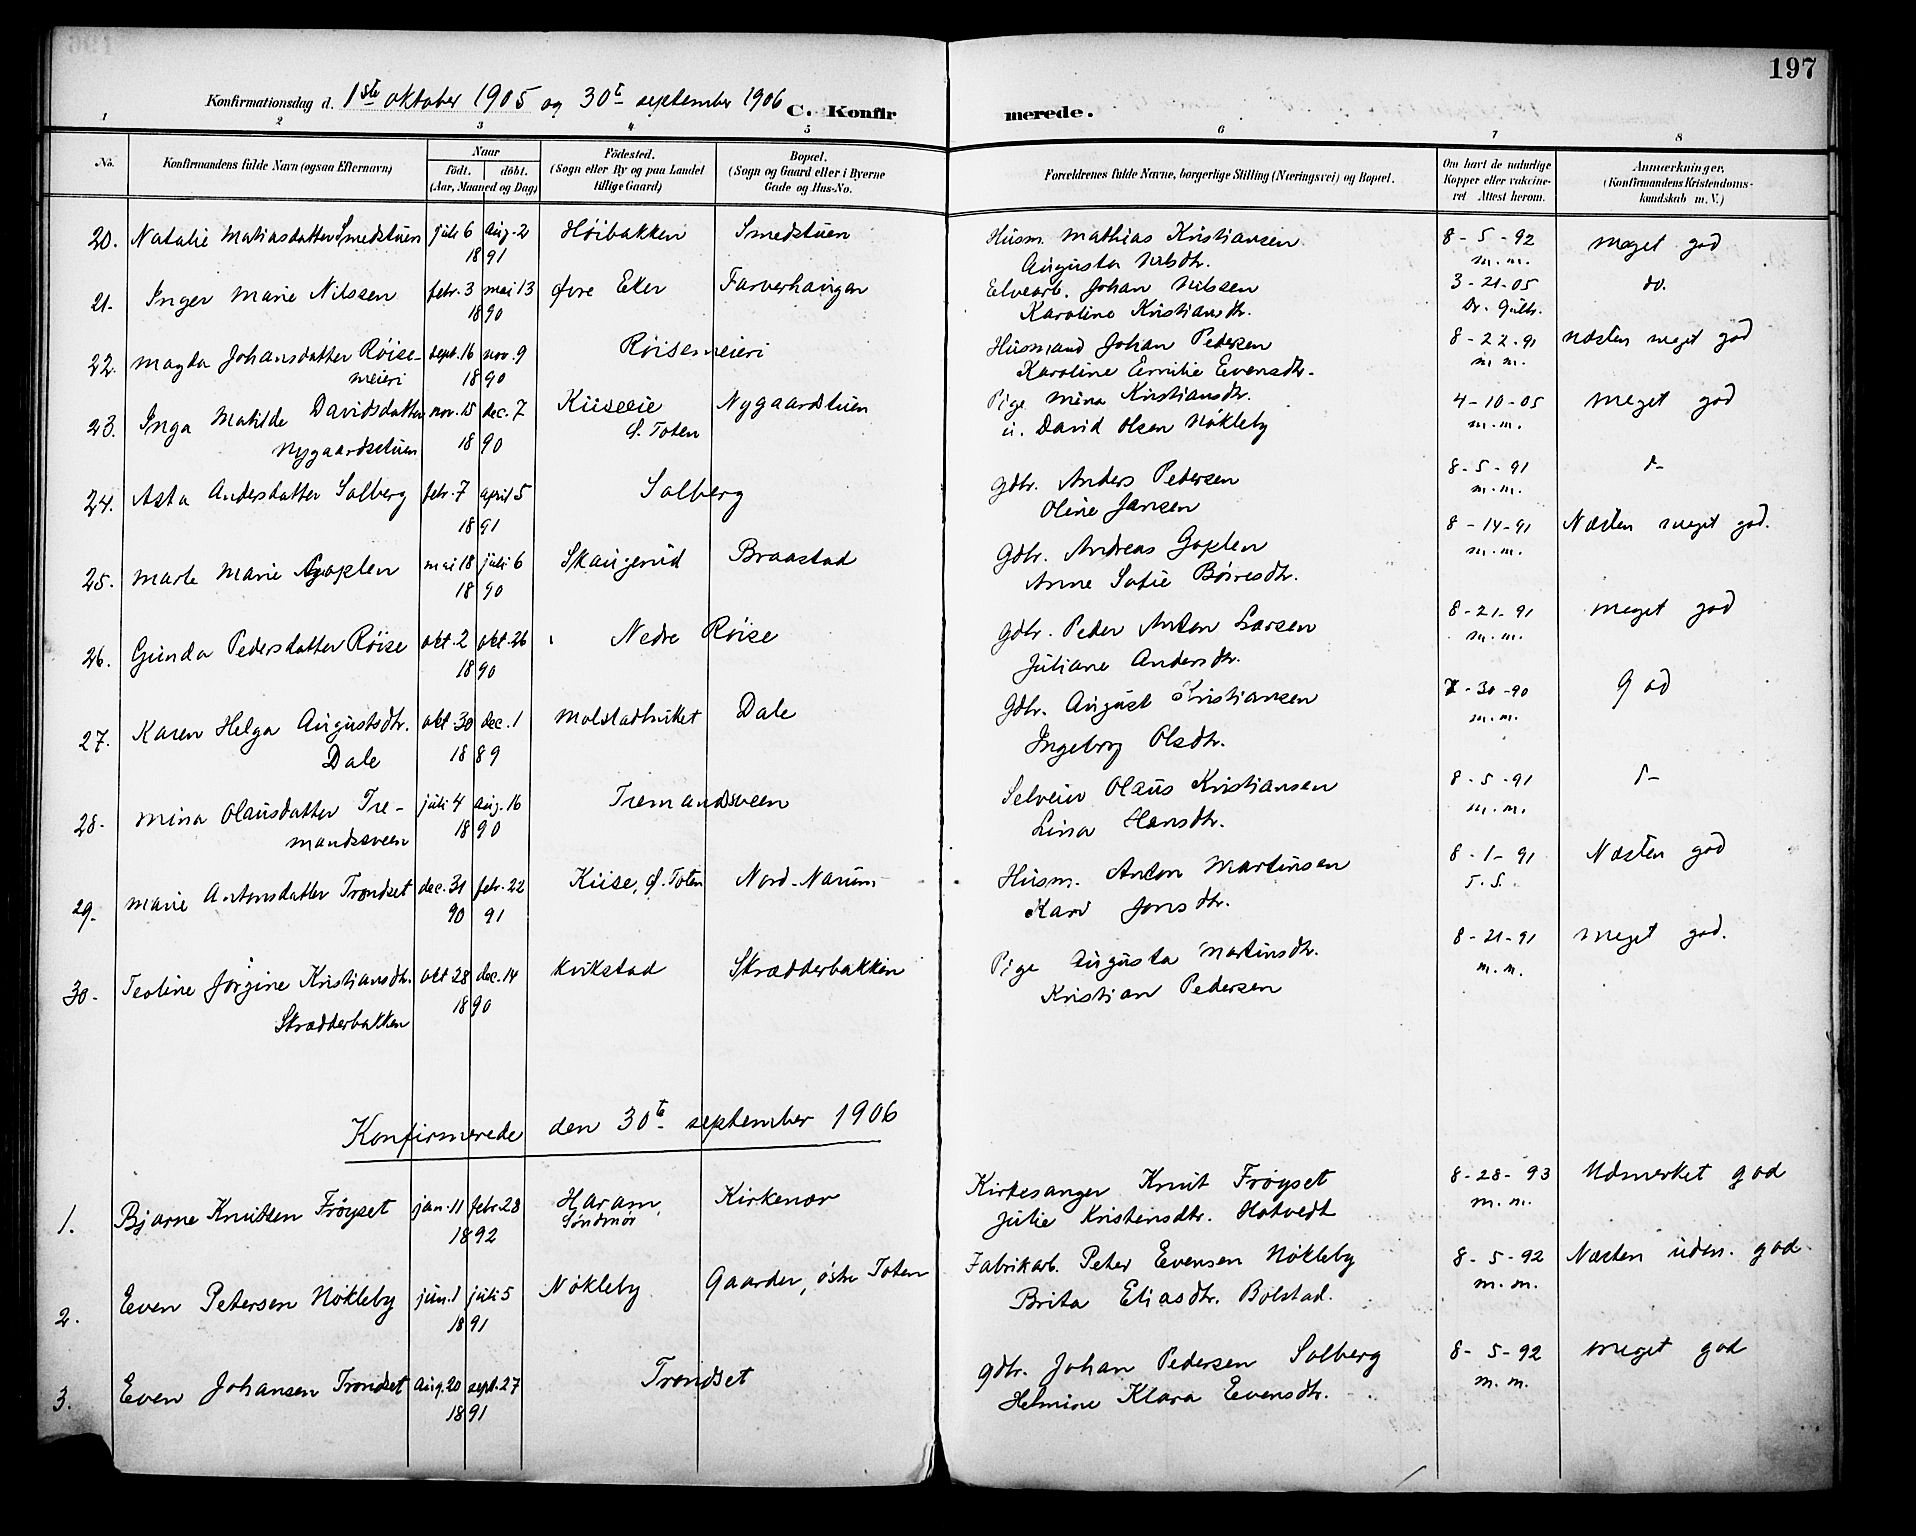 197
Konfirmationsdag d. 1ste oktober 1905 og 30te september 1906
C. Konfirmerede.
1 2 3 4 5 6 7 8
No. Konfirmandens fulde Navn (ogsaa Efternavn) Naar født. døbt. (Aar, Maaned og Dag) Fødested. (Sogn eller By og paa Landet tillige Gaard) Bopæl. (Sogn og Gaard eller i Byerne Gade og Hus-No. Forældrenes fulde Navne, borgerlige Stilling (Næringsvei) og Bopæl. Om havt de naturlige Kopper eller vakcineret. Attest herom. Anmærkninger, (Konfirmandens Kristendomskundskab m. V.)
20. Natalie Matiasdatter Smedstuen juli 6 aug. 2 Høibakken Smedstuen Husm. Mathias Kristiansen 8-5-92 meget god
1891 Augusta Nilsdtr. m.m.
21. Inger Marie Nilssen febr. 3 mai 13 Øvre Eker Farverhaugen Elvearb. Johan Nilssen 3-21-05 do.
1890 Karoline Kristiansdtr. Dr. Gulbr.
22. Magda Johansdatter Røise- sept. 16 nov. 9 Røisemeieri Husmand Johan Pedersen 8-22-91 Næsten meget god
meieri 1890 Karoline Emilie Evensdtr. m.m.
23. Inga Matilde Davidsdatter nov. 15 dec. 7 Kiseeie Nygaardstuen Pige Mina Kristiansdtr. 4-10-05 meget god
Nygaardstuen 1890 Ø. Toten u. David Olsen Nøkleby m.m.
24. Asta Andersdatter Solberg febr. 7 april 5 Solberg Gdbr. Anders Pedersen 8-5-91 d-
1891 Oline Jansen m.m.
25. Marte Marie Goplen mai 18 juli 6 Skaugerud Braastad Gdbr. Andreas Goplen 8-14-91 Næsten meget god.
1890 Anne Sofie Børresdtr. m.m.
26. Gunda Pedersdatter Røise okt. 2 okt. 26 Nedre Røise Gdbr. Peder Anton Larsen 8-21-91 meget god
1890 Juliane Andersdtr. m.m.
27. Karen Helga Augustsdtr. okt. 30 dec. 1 Molstadhuket Dale Gdbr. August Kristiansen 7-30-90 God
Dale 1889 Ingeborg Olsdtr. m.m.
28. Mina Olausdatter Tre- juli 4 aug. 16 Tremandsveen Selveier Olaus Kristiansen 8-5-91 d-
mandssveen 1890 Lina Hansdtr. m.m.
29. Marie Antonsdatter Trondset dec. 31 febr. 22 Kiise, Ø. Toten Nord-Narum Husm. Anton Martinsen 8-1-91 Næsten god
90 91 Kari Jonsdtr. S.S.
30. Teoline Jørgine Kristiansdtr. okt 28 dec. 14 Kvikstad Skrædderbakken Pige Augusta Martinsdtr. 8-21-91 meget god.
Skrædderbakken 1890 Kristian Pedersen m.m.
Konfirmerede den 30te september 1906
1. Bjarne Knutsen Frøyset jan. 11 febr. 28 Haram, Kirkenær Kirkesanger Knut Frøyset 8-28-93 Udmerket god
1892 Søndmør Julie Kristensdtr. Hotvedt m.m.
2. Even Petersen Nøkleby jun. 1 juli 5 Nøkleby Gaarder, østre Toten Fabrikarb. Peter Evensen Nøkleby 8-5-92 Næsten udm. god
1891 Brita Eliasdtr. Bolstad. m.m.
3. Even Johansen Trondset aug. 20 sept. 27 Trondset Gdbr. Johan Pedersen Solberg 8-5-92 meget god
1891 Helmine Klara Evensdtr. m.m.